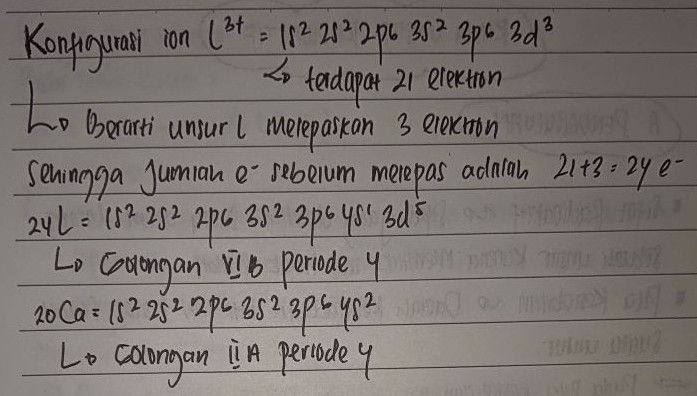 Konfigurasi ion L³⁺ = 1s² 2s² 2p6 3s² 3p6 3d³
↳ terdapat 21 elektron
↳ Berarti unsur L melepaskan 3 elektron
Sehingga jumlah e⁻ sebelum melepas adalah 21+3 = 24 e⁻
24L = 1s² 2s² 2p6 3s² 3p6 4s¹ 3d⁵
↳ Golongan VI B periode 4
20Ca = 1s² 2s² 2p6 3s² 3p6 4s²
↳ Golongan II A periode 4